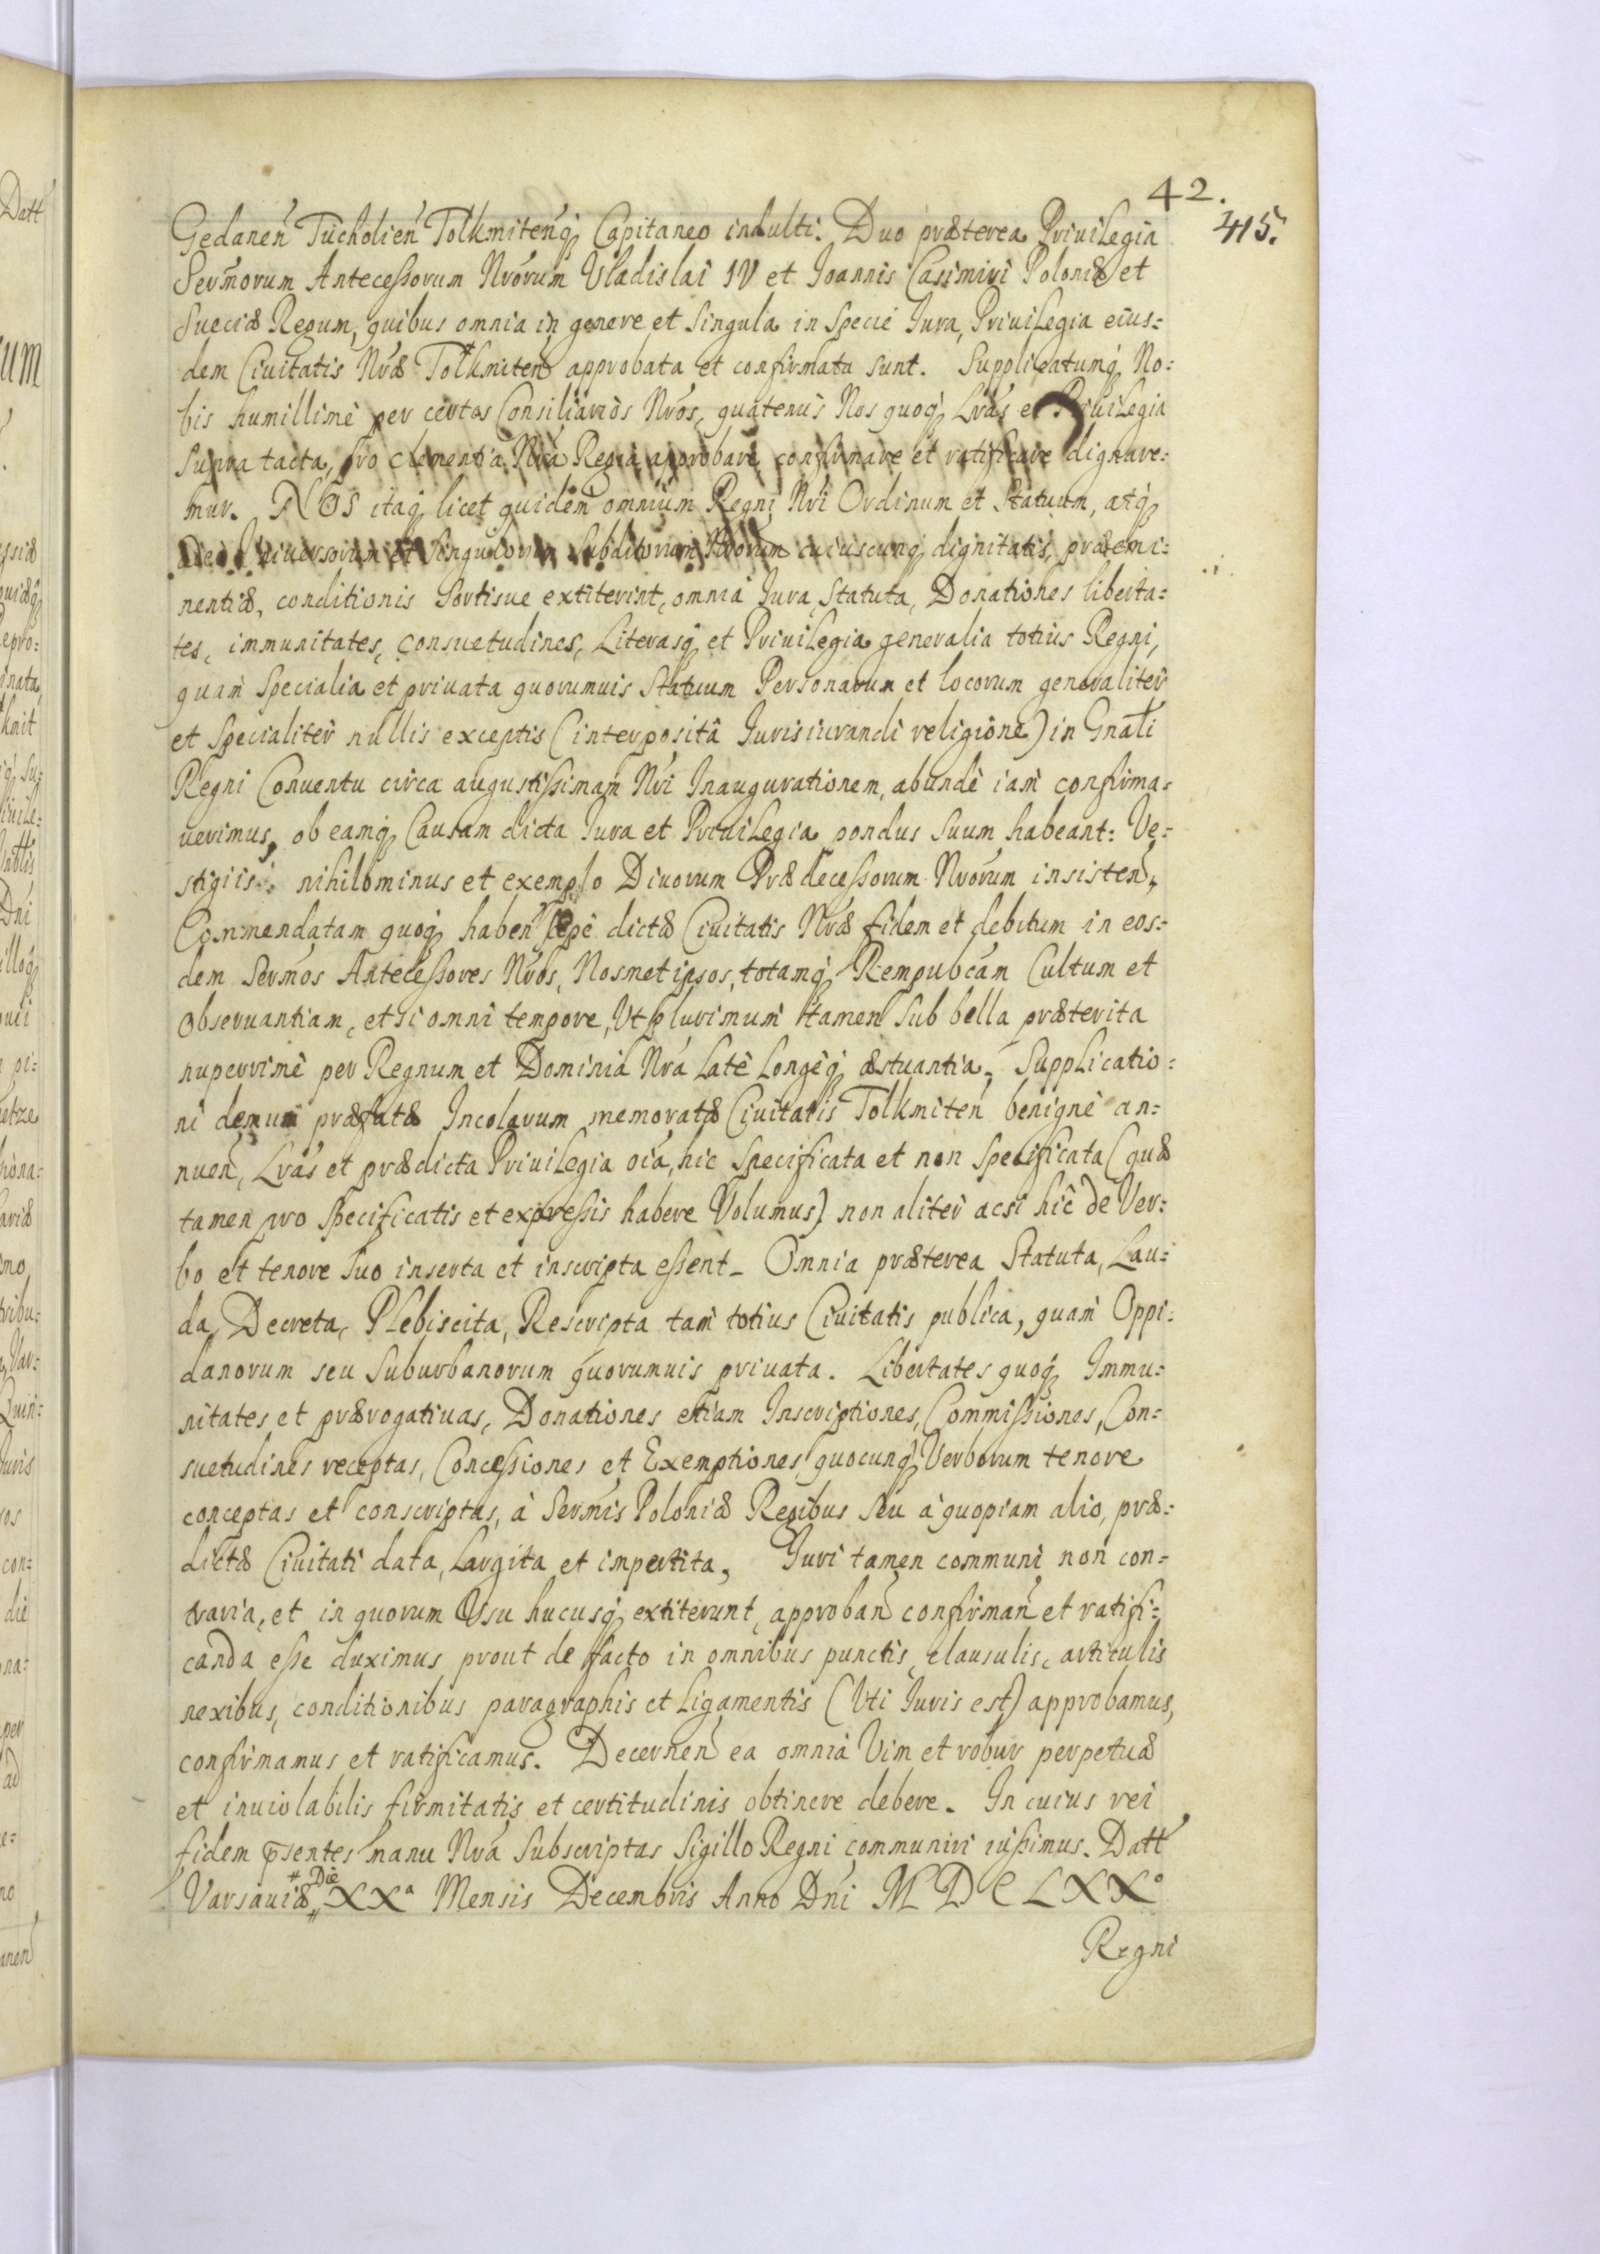 42.
415.
Gedanen̄ Tucholien̄ Tolkmitenq; Capitaneo indulti. Duo præterea Priuilegia
Sermorum Antecessorum Nrorum Vladislai IV et Joannis Casimiri Poloniæ et
Sueciæ Regum, quibus omnia in genere et singula in specie Jura, Priuilegia eius=
dem Ciuitatis Nræ Tolkmiten̄ approbata et confirmata sunt. Supplicatumq; No=
bis humillimè per certos Consiliarios Nros, quatenus Nos quoq; Lras et Priuilegia
supra tacta, pro clementia Nra Regia approbare confirmare et ratificare dignare=
mur. NOS itaq; licet quidem omnium Regni Nri Ordinum et Statuum, atq;
adeo Vniuersorum et Singulorum Subditorum Nrorum cuiuscunq; dignitatis, præemi=
nentiæ, conditionis sortisue extiterint, omnia Jura, Statuta, Donationes liberta=
tes, immunitates, consuetudines, Literasq; et Priuilegia generalia totius Regni,
quam Specialia et priuata quorumuis Statuum Personarum et locorum generaliter
et Specialiter nullis exceptis (interpositâ Jurisiurandi religione) in Gnali
Regni Conuentu circa augustissimam Nri Inaugurationem, abundè iam confirma=
uerimus, ob eamq; Causam dicta Jura et Priuilegia pondus suum habeant: Ve=
stigiis nihilominus et exemplo Diuorum Prædecessorum Nrorum insisten̄,
Commendatam quoq; haben̄ sæpè dictæ Ciuitatis Nræ fidem et debitum in eos=
dem Sermos Antecessores Nros, Nosmet ipsos, totamq; Rempubcam Cultum et
Obseruantiam, etsi omni tempore, Vt plurimum tamen sub bella præterita
nuperrimè per Regnum et Dominia Nra latè Longèq; æstuantia, Supplicatio=
ni demum præfatæ Incolarum memoratæ Ciuitatis Tolkmiten̄ benignè an=
nuen̄, Lras et prædicta Priuilegia oia, hic specificata et non specificata (quæ
tamen pro specificatis et expressis habere Volumus) non aliter acsi hîc de Ver=
bo et tenore suo inserta et inscripta essent_ Omnia præterea Statuta, Lau=
da, Decreta, Plebiscita, Rescripta tam totius Ciuitatis publica, quam Oppi=
danorum seu Suburbanorum quorumuis priuata. Libertates quoq; Immu=
nitates, et prærogatiuas, Donationes etiam Inscriptiones, Commissiones, Con=
suetudines receptas, Concessiones et Exemptiones quocunq; Verborum tenore
conceptas et conscriptas, à Sermis Poloniæ Regibus seu à quopiam alio, præ=
dictæ Ciuitati data, Largita et impertita, Juri tamen communi non con=
traria, et in quorum Vsu hucusq; extiterunt, approban̄ confirman̄ et ratifi=
canda esse duximus, prout de facto in omnibus punctis, clausulis, articulis
nexibus, conditionibus paragraphis et Ligamentis (Vti Juris est) approbamus,
confirmamus et ratificamus. Decernen̄ ea omnia Vim et robur perpetuæ
et inuiolabilis firmitatis et certitudinis obtinere debere. In cuius rei
fidem p̄sentes manu Nra Subscriptas Sigillo Regni communiri iussimus. Datt
Varsauiæ Die XXª Mensis Decembris Anno Dni M D C LXXº
Regni